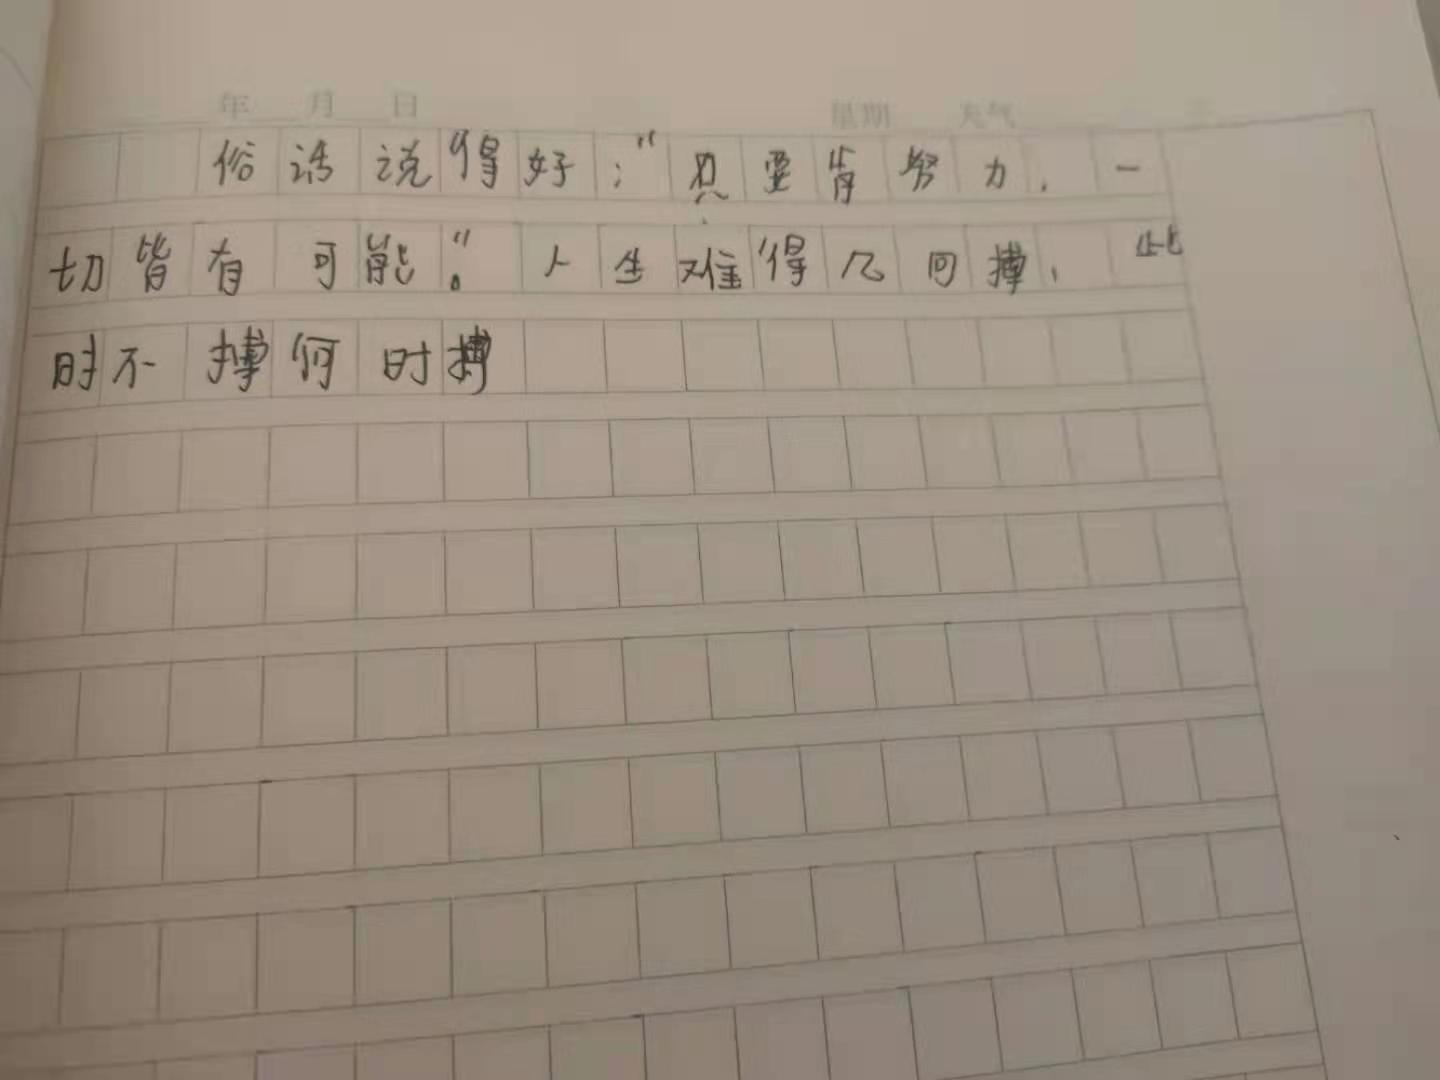 年 月 日 星期 天气
俗话说得好:"只要肯努力,一
切皆有可能。"人生难得几回搏,此
时不搏何时搏